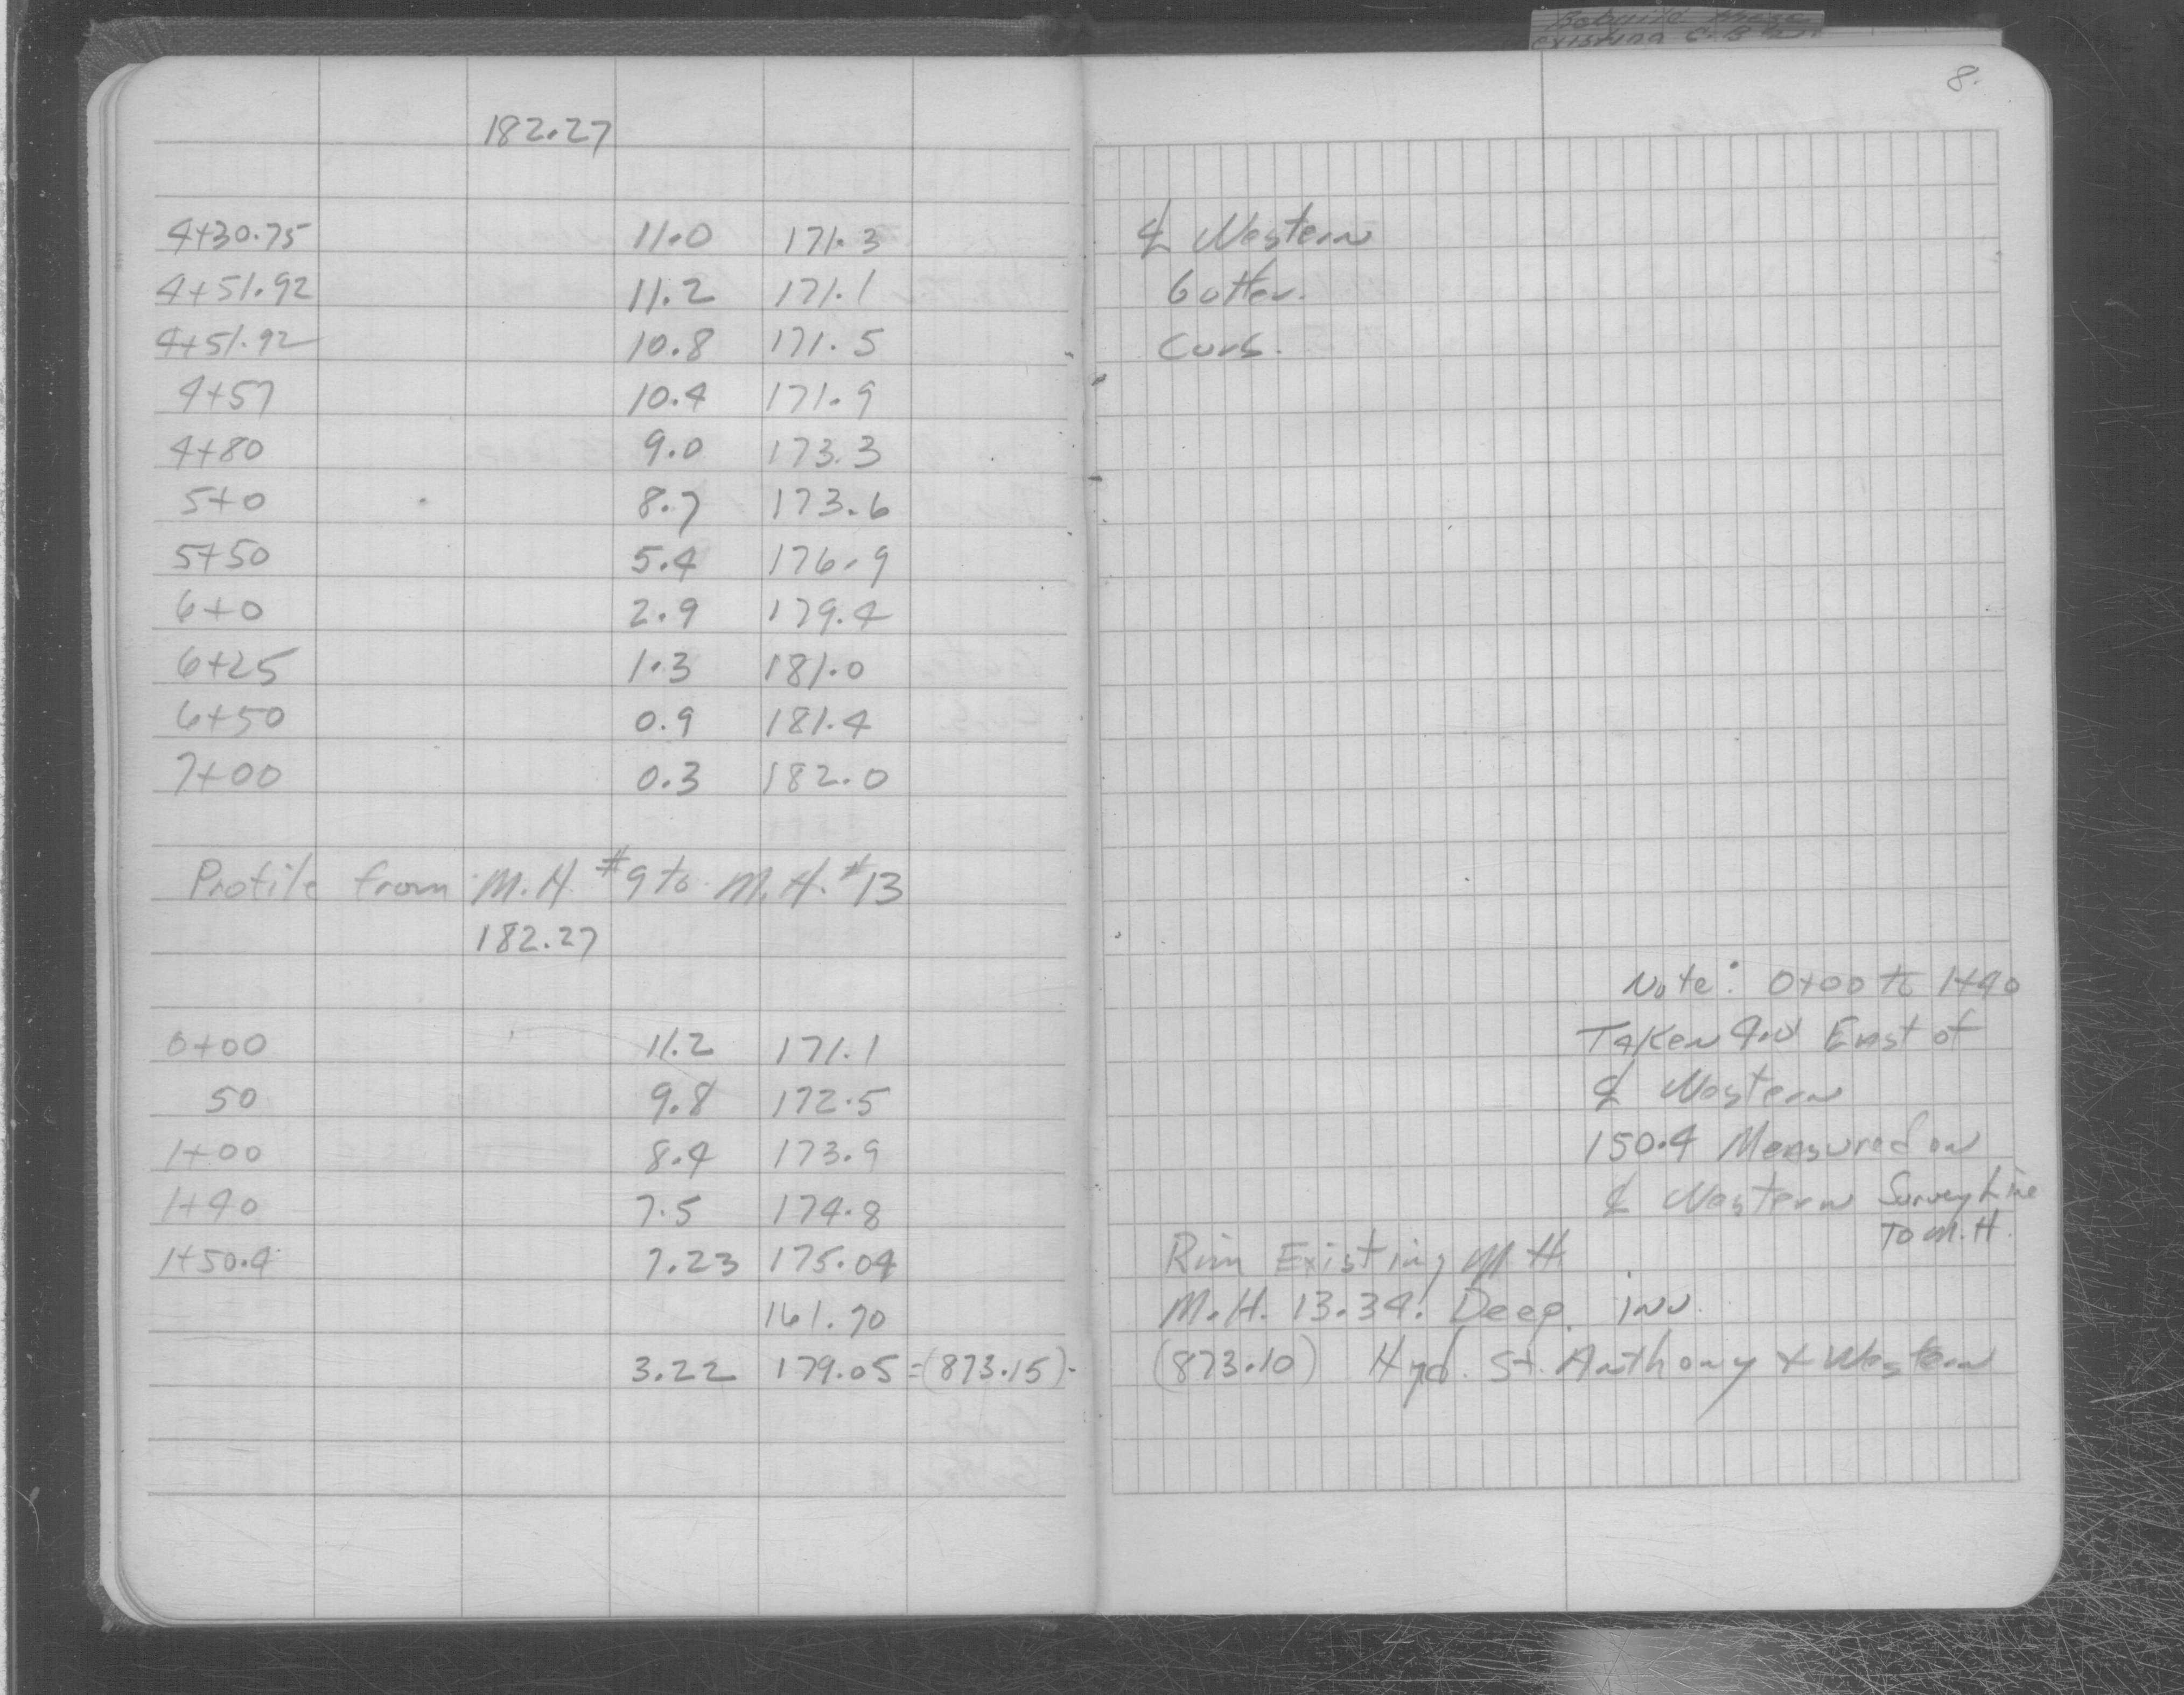 existing C.B.
8.
182.27
4+30.75 11.0 171.3 ℄ Western
4+51.92 11.2 171.1 Gutter.
4+51.92 10.8 171.5 Curb.
4+57 10.4 171.9
4+80 9.0 173.3
5+0 8.7 173.6
5+50 5.4 176.9
6+0 2.9 179.4
6+25 1.3 181.0
6+50 0.9 181.4
7+00 0.3 182.0
Profile from M.H. #9 to M.H. #13
182.27
Note: 0+00 to 1+40
0+00 11.2 171.1 Taken East of
50 9.8 172.5 ℄ Western
1+00 8.4 173.9 150.4 Measured on
1+40 7.5 174.8 ℄ Western Survey Line
To M.H.
1+50.4 7.23 175.04 Rim Existing M.H.
161.70 M.H. 13.34. Deep. inv.
3.22 179.05 =(873.15). (873.10) Hyd. St. Anthony & Western